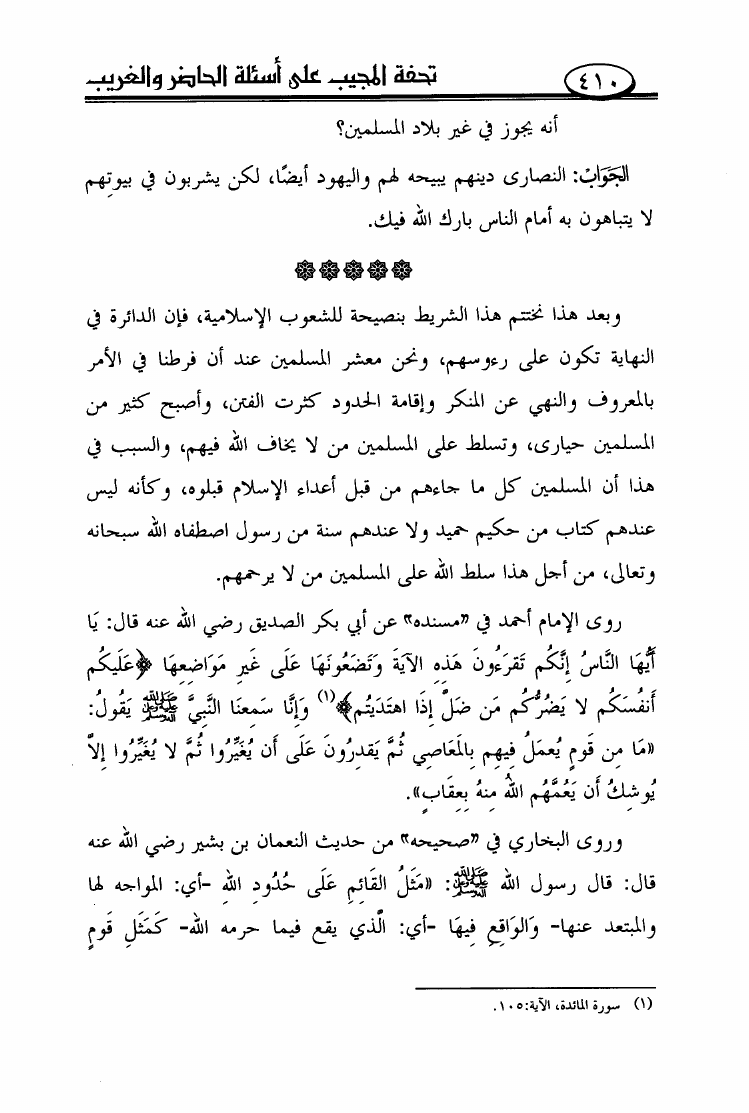 ٤١٠
تحفة المجيب على أسئلة الحاضر والغريب
أنه يجوز في غير بلاد المسلمين؟
الجَوَابُ: النصارى دينهم يبيحه لهم واليهود أيضًا، لكن يشربون في بيوتِهم
لا يتباهون به أمام الناس بارك الله فيك.
وبعد هذا نختتم هذا الشريط بنصيحة للشعوب الإسلامية، فإن الدائرة في
النهاية تكون على رءوسهم، ونحن معشر المسلمين عند أن فرطنا في الأمر
بالمعروف والنهي عن المنكر وإقامة الحدود كثرت الفتن، وأصبح كثير من
المسلمين حيارى، وتسلط على المسلمين من لا يخاف الله فيهم، والسبب في
هذا أن المسلمين كل ما جاءهم من قبل أعداء الإسلام قبلوه، وكأنه ليس
عندهم كتاب من حكيم حميد ولا عندهم سنة من رسول اصطفاه الله سبحانه
وتعالى، من أجل هذا سلط الله على المسلمين من لا يرحمهم.
روى الإمام أحمد في «مسنده» عن أبي بكر الصديق رضي الله عنه قال: يَا
أَيُّهَا النَّاسُ إِنَّكُم تَقرَءُونَ هَذِهِ الآيَةَ وَتَضَعُونَهَا عَلَى غَيرِ مَوَاضِعِهَا ﴿عَلَيكُم
أَنفُسَكُم لا يَضُرُّكُم مَن ضَلَّ إِذَا اهتَدَيتُم﴾(١) وَإِنَّا سَمِعنَا النَّبِيَّ ﷺ يَقُولُ:
«مَا مِن قَومٍ يُعمَلُ فِيهِم بِالمَعَاصِي ثُمَّ يَقدِرُونَ عَلَى أَن يُغَيِّرُوا ثُمَّ لا يُغَيِّرُوا إِلاَّ
يُوشِكُ أَن يَعُمَّهُم اللهُ مِنهُ بِعِقَابٍ».
وروى البخاري في «صحيحه» من حديث النعمان بن بشير رضي الله عنه
قال: قال رسول الله ﷺ: «مَثَلُ القَائِمِ عَلَى حُدُودِ اللهِ -أي: المواجه لها
والمبتعد عنها- وَالوَاقِعِ فِيهَا -أي: الَّذي يقع فيما حرمه الله- كَمَثَلِ قَومٍ
(١) سورة المائدة، الآية:١٠٥.